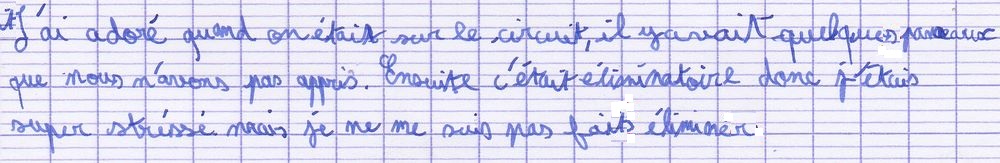 "J'ai adoré quand on était sur le circuit, il y avait quelques panneaux
que nous n'avons pas appris. Ensuite c'était éliminatoire donc j'étais
super stréssé mais je ne me suis pas faits éliminer.